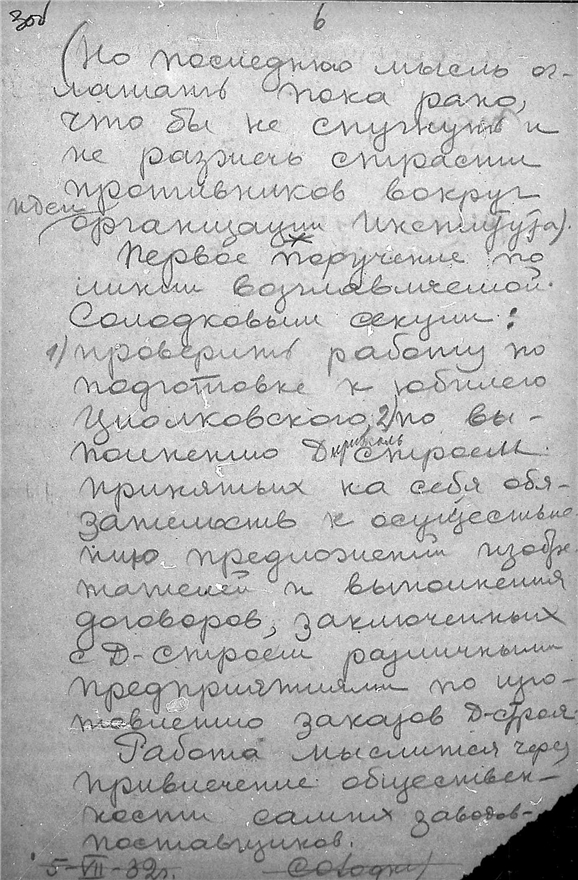 6
(Но последнюю мысль ог-
лашать пока рано,
что бы не спугнуть и
не разжечь страсти
противников вокруг
идеи
организации Института).
Первое поручение по
линии возглавляемой
Солодковым секции:
1) проверить работу по
подготовке к юбилею
Циолковского, 2) по вы-
полнению Дирижабльстроем
принятых на себя обя-
зательств к осуществле-
нию предложений изобре-
тателей и выполнения
договоров, заключенных
с Д-строем различными
предприятиями по изго-
товлению заказов Д-строя.
Работа мыслится через
привлечение обществен-
ности самих заводов-
поставщиков.
5-VII-32г.